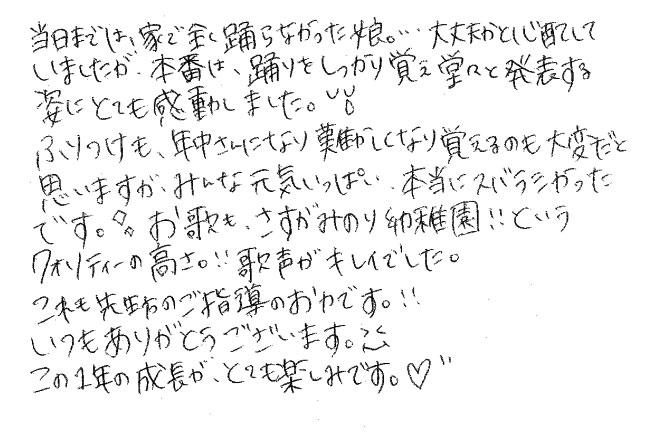 当日までは、家で全く踊らなかった娘。… 大丈夫かと心配して
いましたが、本番は、踊りをしっかり覚え堂々と発表する
姿にとても感動しました。
ふりつけも、年中さんになり難かしくなり覚えるのも大変だと
思いますが、みんな元気いっぱい、本当にスバラシかった
です。お歌も、さすがみのり幼稚園!!という
クォリティーの高さ。!!歌声がキレイでした。
これも先生方のご指導のお力です。!!
いつもありがとうございます。
この1年の成長が、とても楽しみです。♡